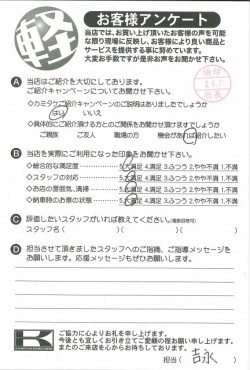 軽
お客様アンケート
当店では、お買い上げ頂いたお客様の声を可能
な限り現場に反映し、お客様により良い商品と
サービスを提供する事に努めています。
大変お手数ですが是非お声をお聞かせ下さい。
A 当店はご紹介を大切にしております。
ご紹介キャンペーンについてお聞かせ下さい。
◇カミタケご紹介キャンペーンのご説明はありましたでしょうか
はい いいえ
◇具体的にご紹介頂ける方とのご関係をお聞かせ頂けますでしょうか
ご親族 ご友人 職場の方 機会があれば紹介したい
B 当店を実際にご利用になった印象をお聞かせ下さい。
◇総合的な満足度 5.大満足 4.満足 3.ふつう 2.やや不満 1.不満
◇スタッフの対応 5.大満足 4.満足 3.ふつう 2.やや不満 1.不満
◇お店の雰囲気、清掃 5.大満足 4.満足 3.ふつう 2.やや不満 1.不満
◇納車時のお車の状態 5.大満足 4.満足 3.ふつう 2.やや不満 1.不満
C 評価したいスタッフがいれば教えてください。(複数回答可)
スタッフ名( )( )( )
D 担当させて頂きましたスタッフへのご指摘、ご指導メッセージを
お願いします。応援メッセージもぜひお願いします。
K
ご協力に心よりお礼を申し上げます。
今後とも宜しくお引き立てご愛顧の程お願い申し上げます。
またのご来店を心からお待ちしております。
担当( 吉永 )